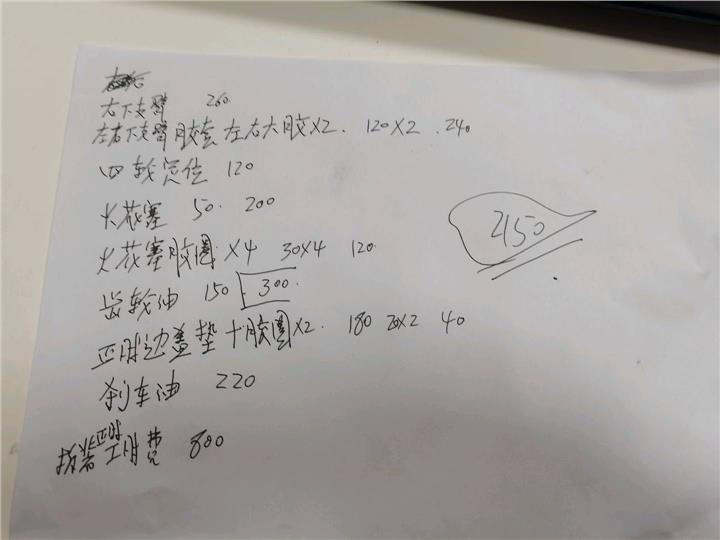 右下支臂 260
左右下支臂胶套 左右大胶X2. 120X2. 240
四轮定位 120
火花塞 50. 200
火花塞胶圈 X4 30X4 120.
齿轮油 150 300.
正时边盖垫十胶圈X2. 180 20X2 40
刹车油 220
工时费 800
2150